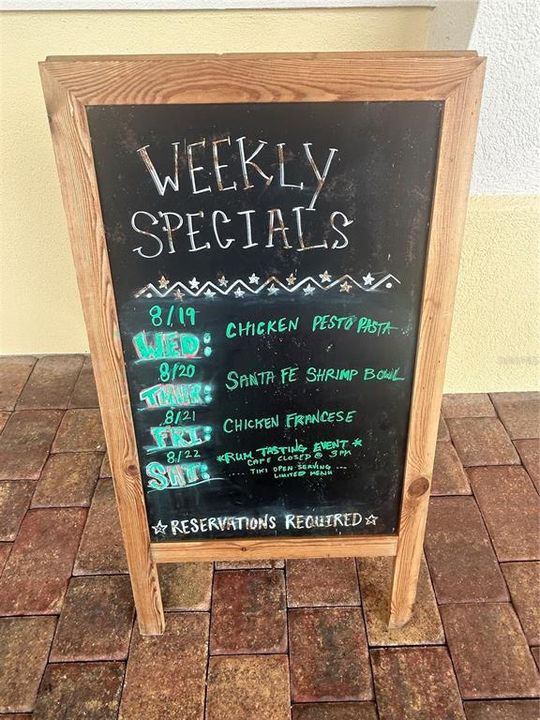 WEEKLY
SPECIALS
8/19
WED: CHICKEN PESTO PASTA
8/20
THUR: SANTA FE SHRIMP BOWL
8/21
FRI: CHICKEN FRANCESE
8/22
SAT: *RUM TASTING EVENT*
CAFE CLOSED @ 3PM
... TIKI OPEN SERVING ...
LIMITED MENU
☆RESERVATIONS REQUIRED☆